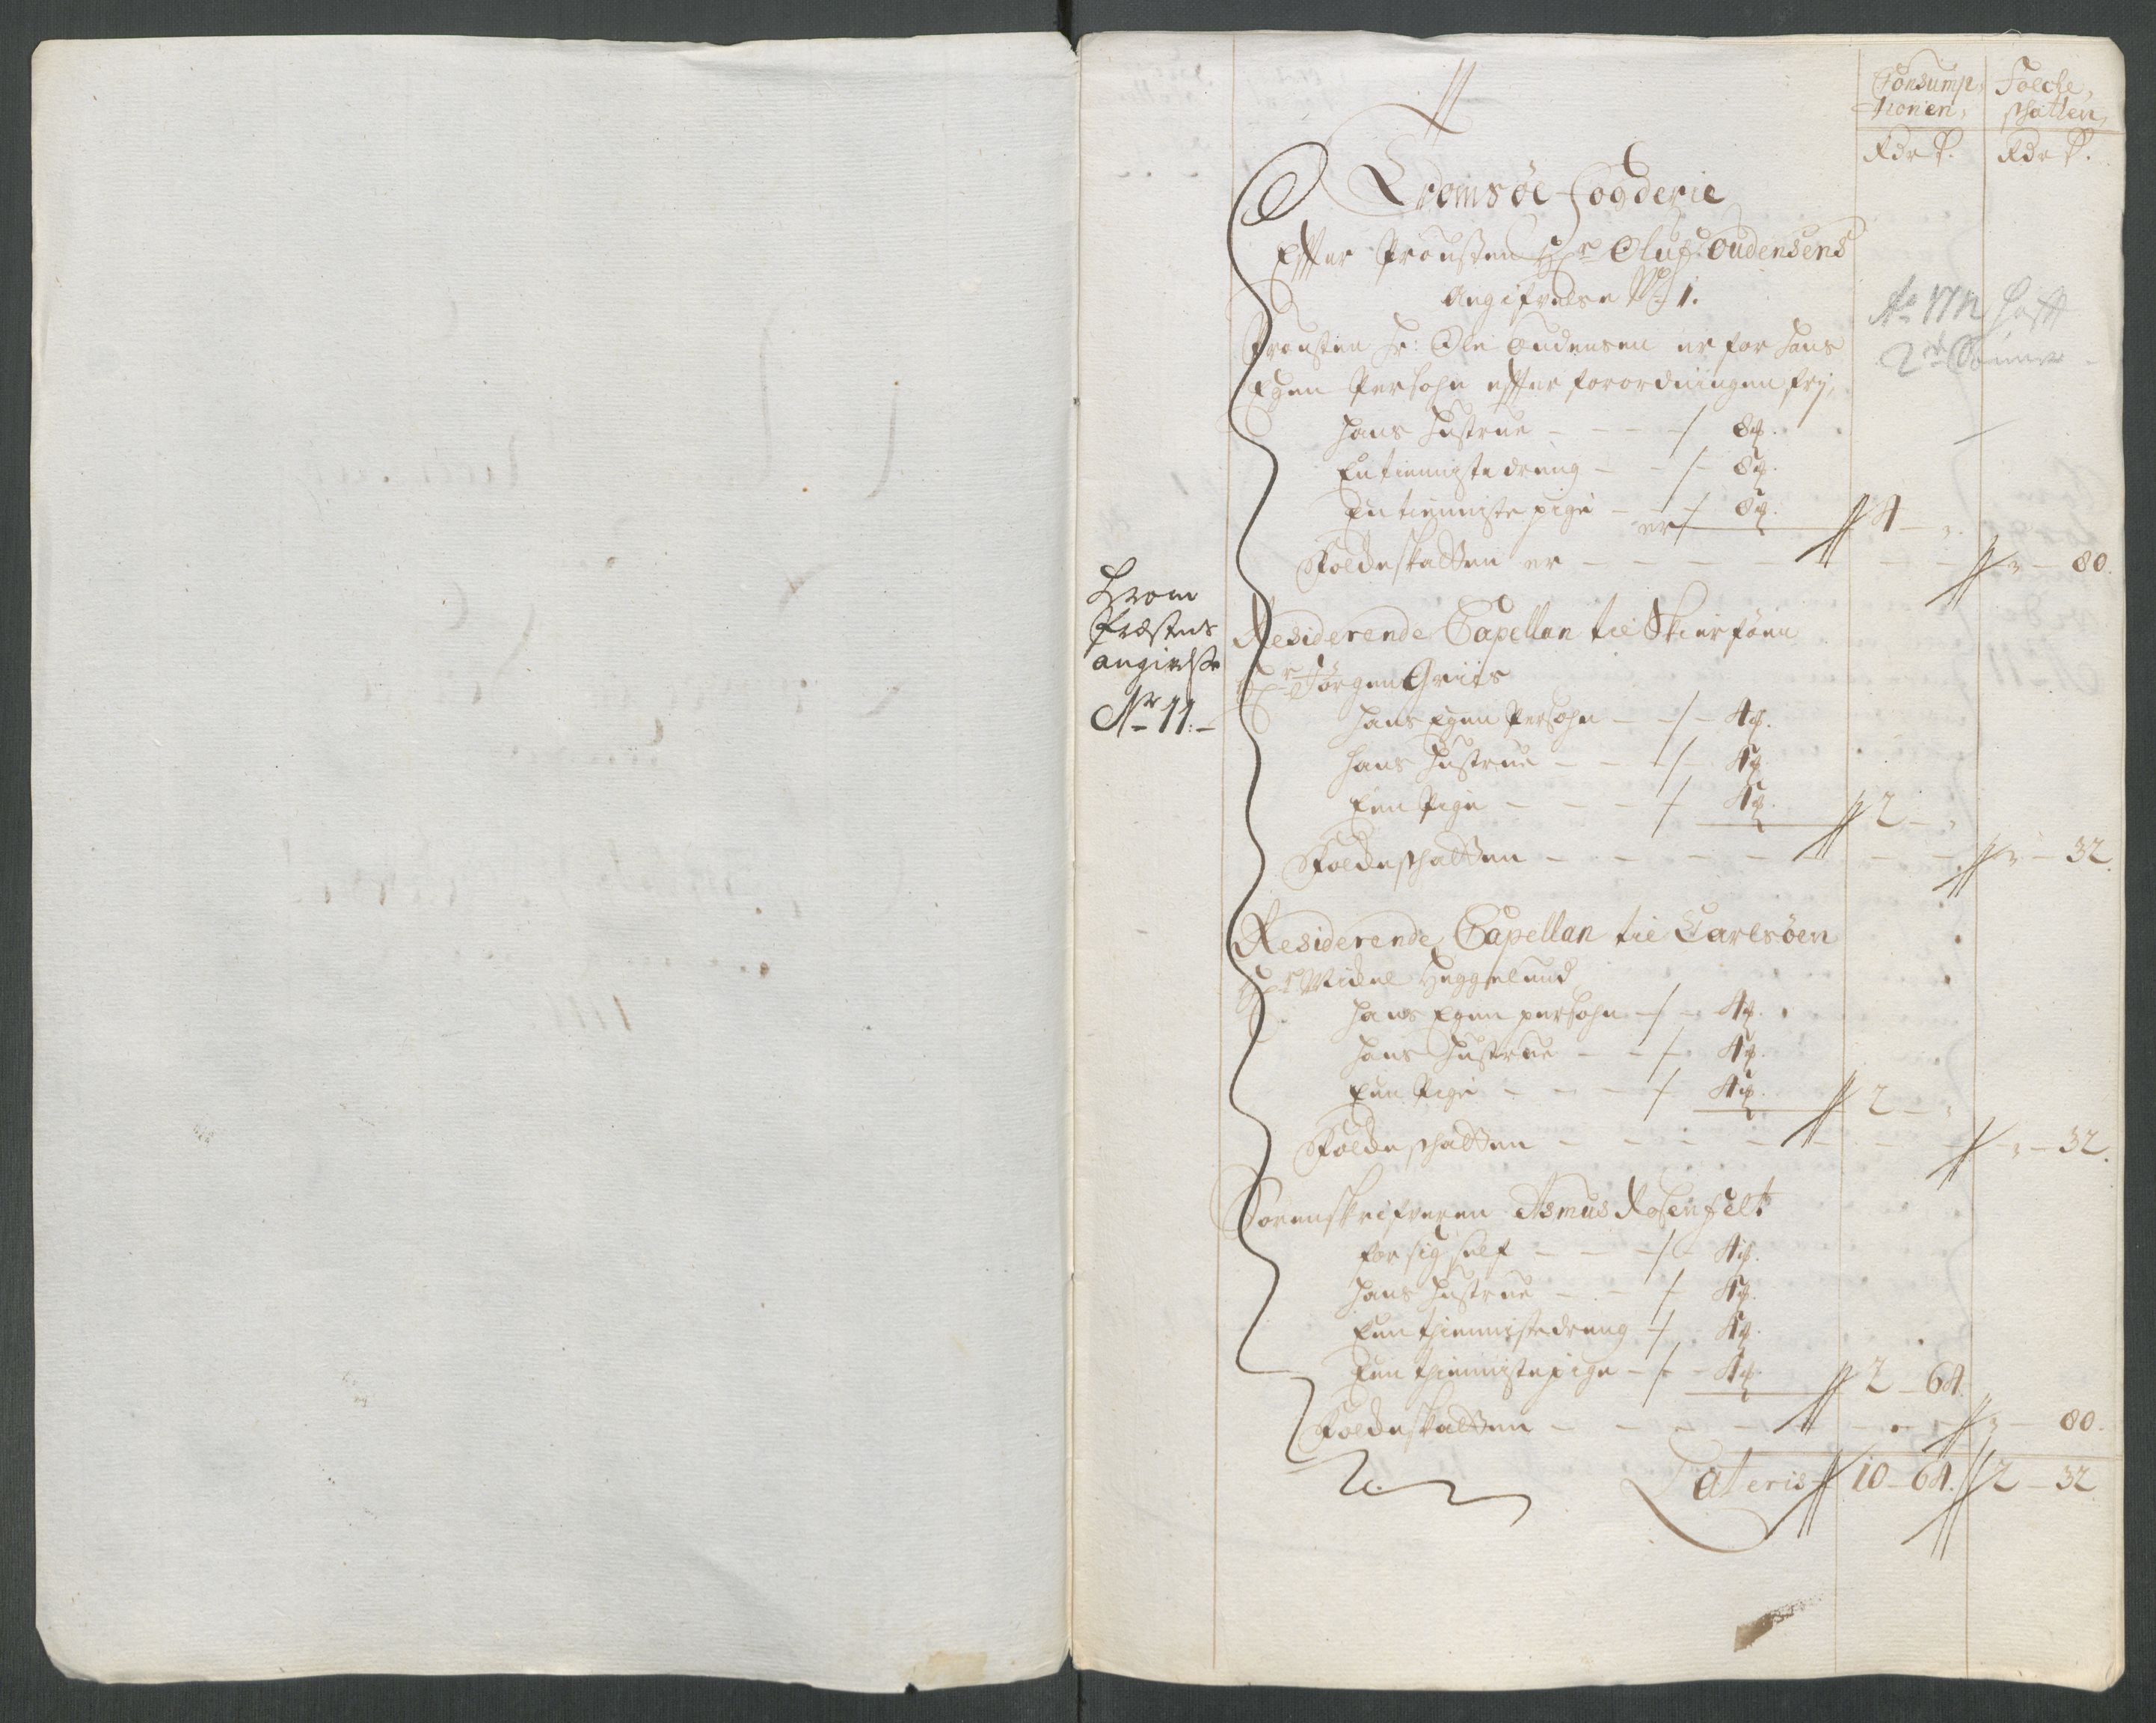 Consump,
tionen,
Folche,
schatten,
Rdr ß.
Rdr ß.
Tromsøe Fogderie
Efter Prousten Hr Oluf Oudensens
Angifvelse No 1.
Prousten Hr: Ole Oudensen er for hans
Egen Persohn efter forordningen frj,
Hans Hustrue - - - 8 mk.
En tiennistedreng - - 8 mk.
En tienniste pige - - 8 mk.
er 4 - "
Folcheskatten er - - - - " - 80.
From
Præstens
angivelse
Nr 11.
Residerende Capellan til Skierføen
Hr Jørgen Griis
Hans Egen Persohn - - 4 mk.
Hans Hustrue - - 4 mk.
Een Pige - - - 4 mk. 2 - "
Folcheschatten - - - - " - 32.
Residerende Capellan til Carlsøen
Hr Michel Heggelund
Hans Egen persohn - - 4 mk.
Hans Hustrue - - 4 mk.
Een Pige - - - 4 mk. 2 - "
Folcheschatten - - - - " - 32.
Sorenskrifveren Asmus Rosenfelt
for sig self - - - 4 mk.
Hans Hustrue - - - 4 mk.
Een thiennistedreng - 4 mk.
Een thiennistepige - - 4 mk. 2 - 64.
Folcheskatten - - - - " - 80.
Lateris 10 - 64. 2 - 32